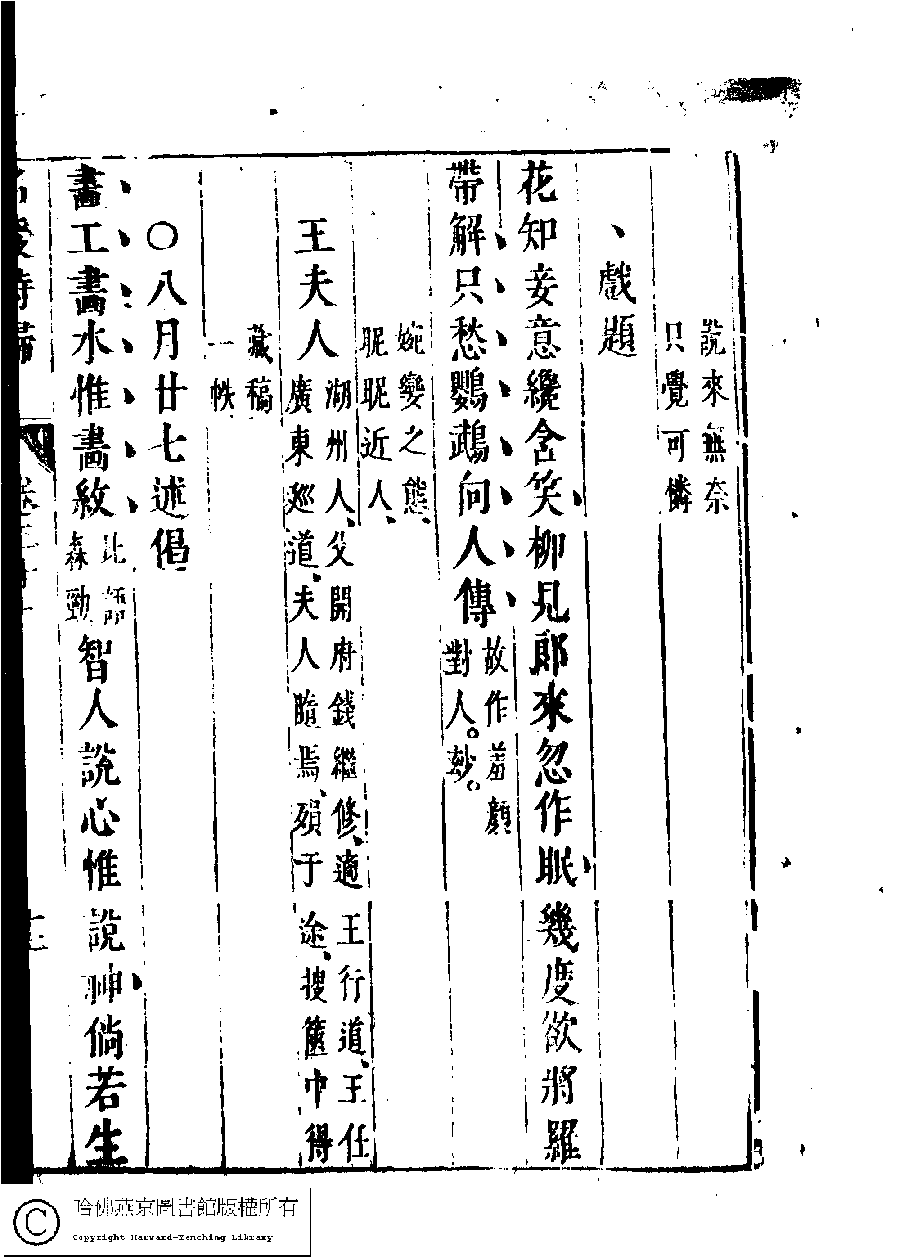 說來無奈
只覺可憐
、戲題
花知妾意纔含笑、柳見郎來忽作眠、幾度欲將羅
帶解只愁鸚鵡向人傳故作羞顏
對人。妙。
婉孌之態、
昵昵近人、
王夫人湖州人、父開府錢繼修、適王行道、王任
廣東巡道、夫人隨焉、殞于途、搜篋中得
藏稿
一帙
〇八月廿七述偈
畫工畫水惟畫紋比語
森勁智人說心惟說神、倘若生
名媛詩歸
卷三十
十三
哈佛燕京圖書館版權所有
Copyright Harvard-Yenching Library